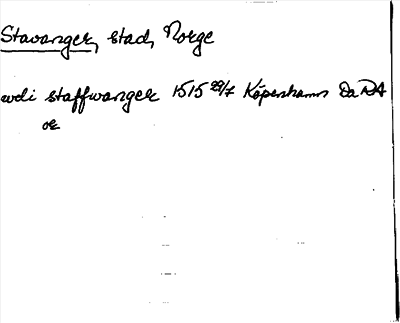 Stavanger, stad, Norge
wdi staffwanger 1515 29/7 Köpenhamn Da RA
or